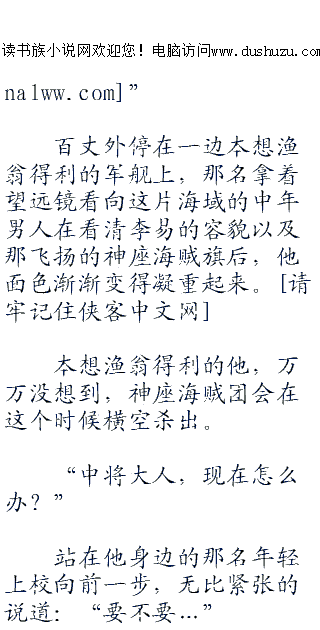 读书族小说网欢迎您！电脑访问www.dushuzu.com
nalww.com]”
百丈外停在一边本想渔
翁得利的军舰上，那名拿着
望远镜看向这片海域的中年
男人在看清李易的容貌以及
那飞扬的神座海贼旗后，他
面色渐渐变得凝重起来。[请
牢记住侠客中文网]
本想渔翁得利的他，万
万没想到，神座海贼团会在
这个时候横空杀出。
“中将大人，现在怎么
办？”
站在他身边的那名年轻
上校向前一步，无比紧张的
说道：“要不要…”